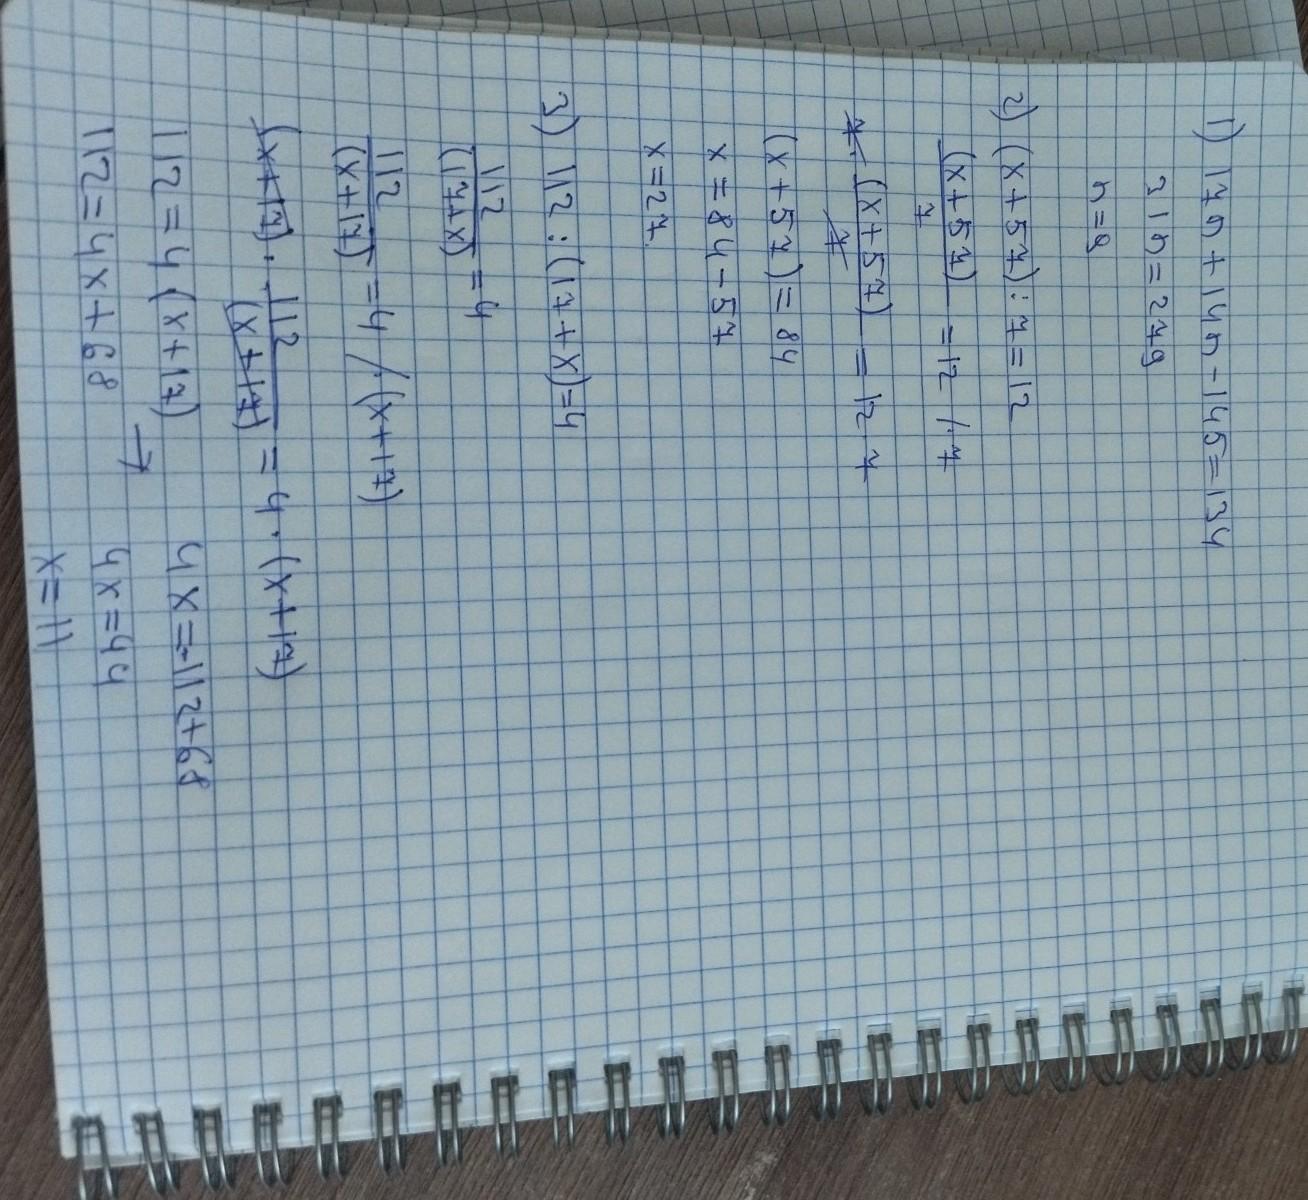 1) 17n + 14n - 145 = 134
31n = 279
n = 9
2) (x + 57) : 7 = 12
(x + 57)/7 = 12 / · 7
7 · (x + 57)/7 = 12 · 7
(x + 57) = 84
x = 84 - 57
x = 27
3) 112 : (17 + x) = 4
112/(17 + x) = 4
112/(x + 17) = 4 / · (x + 17)
(x + 17) · 112/(x + 17) = 4 · (x + 17)
112 = 4 · (x + 17)
112 = 4x + 68 →
4x = -112 + 68
4x = 44
x = 11